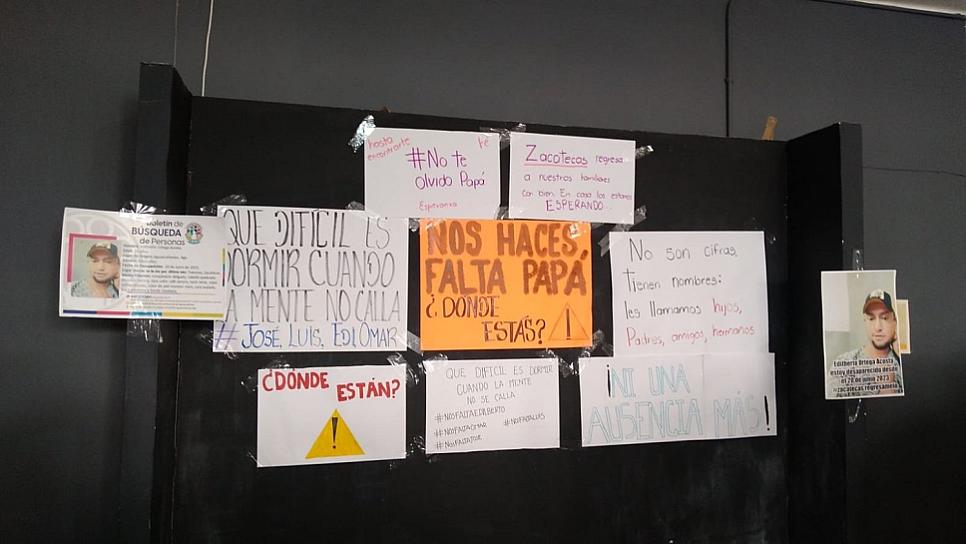 hasta
encontrarte
Fé
#No te
olvido Papá
Esperanza
Zacatecas regresa
a nuestros familiares
con bien. En casa los estamos
ESPERANDO...
Boletín de
BÚSQUEDA
de Personas
QUE DIFICIL ES
DORMIR CUANDO
LA MENTE NO CALLA
# JOSÉ, LUIS, EDI, OMAR
NOS HACES
FALTA PAPÁ
¿DONDE
ESTÁS?
No son cifras,
Tienen nombres:
les llamamos hijos,
Padres, amigos, hermanos
Edilberto Ortega Acosta
estoy desaparecido desde
el 20 de junio 2023
¿DÓNDE ESTÁN?
!
QUE DIFICIL ES DORMIR
CUANDO LA MENTE
NO SE CALLA
#NOSFALTAEDILBERTO
#NOSFALTAOMAR #NOSFALTALUIS
¡NI UNA
AUSENCIA MÁS!